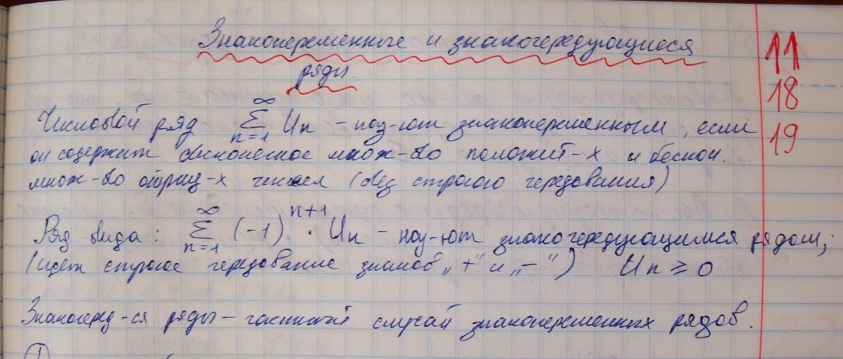 Знакопеременные и знакочередующиеся
ряды.
11
18
19
Числовой ряд ∑_{n=1}^{∞} Un – наз-ют знакопеременным, если
он содержит бесконечное множ-во положит-х и бескон.
множ-во отриц-х чисел (без строгого чередования)
Ряд вида: ∑_{n=1}^{∞} (-1)^{n+1} · Un – наз-ют знакочередующимся рядом,
(идёт строгое чередование знаков „+" и „–") Un ≥ 0
Знакочеред-ся ряды – частный случай знакопеременных рядов.